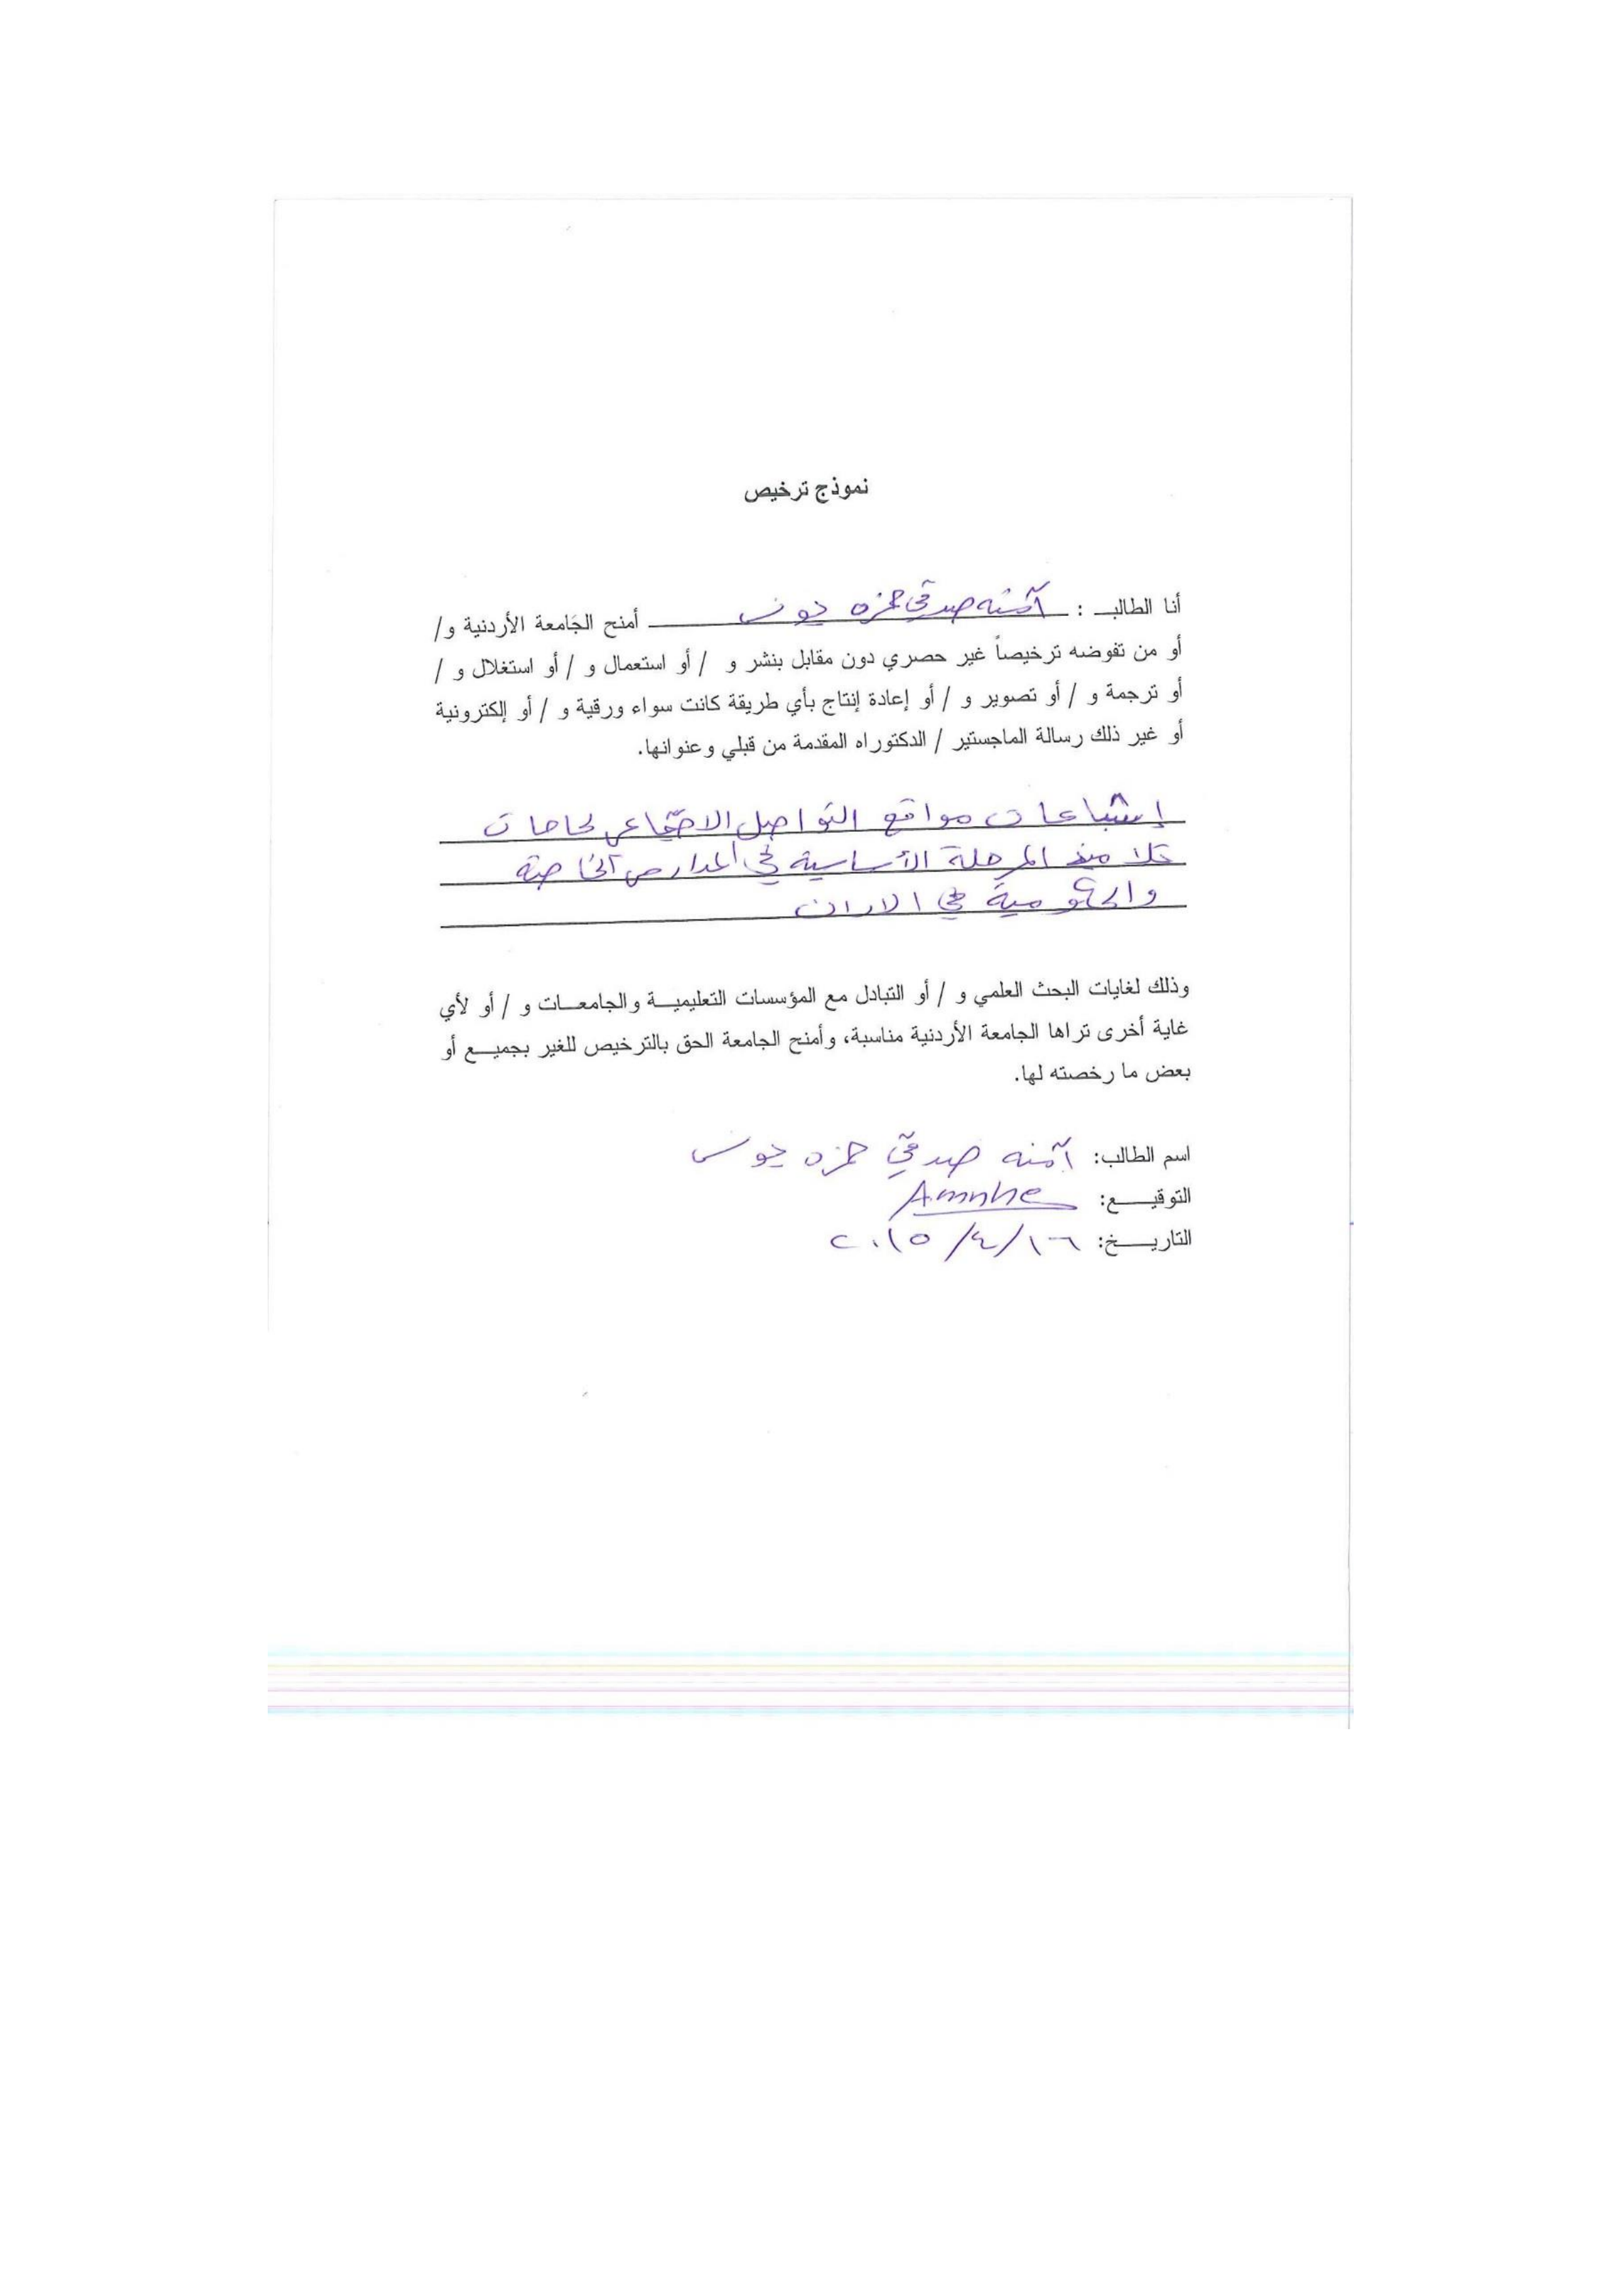 نموذج ترخيص
أنا الطالبـ : آمنه صدقي حمزه يونس أمنح الجامعة الأردنية و/
أو من تفوضه ترخيصاً غير حصري دون مقابل بنشر و / أو استعمال و / أو استغلال و /
أو ترجمة و / أو تصوير و / أو إعادة إنتاج بأي طريقة كانت سواء ورقية و / أو إلكترونية
أو غير ذلك رسالة الماجستير / الدكتوراه المقدمة من قبلي وعنوانها.
إشباعات مواقع التواصل الاجتماعي لحاجات
تلاميذ المرحلة الأساسية في المدارس الخاصة
والحكومية في الاردن
وذلك لغايات البحث العلمي و / أو التبادل مع المؤسسات التعليميـة والجامعـات و / أو لأي
غاية أخرى تراها الجامعة الأردنية مناسبة، وأمنح الجامعة الحق بالترخيص للغير بجميـع أو
بعض ما رخصته لها.
اسم الطالب: آمنه صدقي حمزه يونس
التوقيـع: Amnhe
التاريـخ: ١٦/٤/٢٠١٥